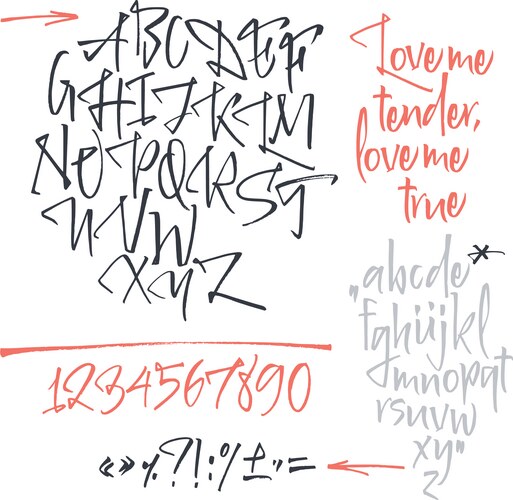 ABCDEF
GHIJKLM
NOPQRST
UVW
XYZ
Love me
tender,
love me
true
abcde*
"fghijkl
mnopqt
rsuvw
xy"
z
1234567890
«»٪?!:%±"=